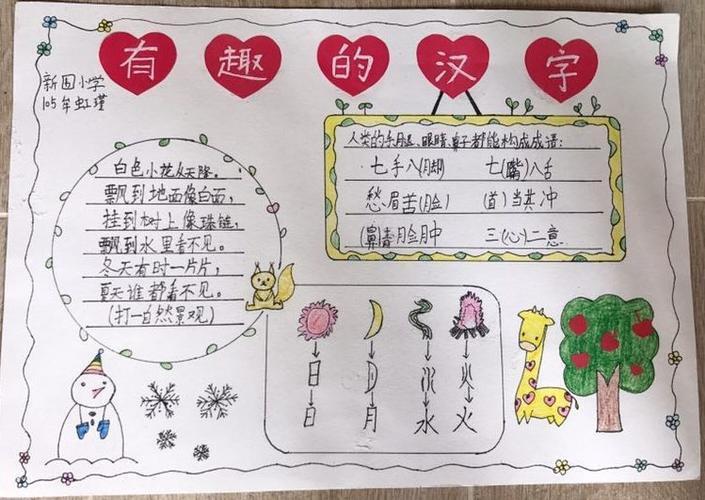 有趣的汉字
新园小学
105年虹瑾
白色小花从天降。
飘到地面像白面,
挂到树上像珠链,
飘到水里看不见。
冬天有时一片片,
夏天谁都看不见。
(打一自然景观)
人类的手、腿、眼睛、鼻子都能构成成语:
七手八(脚) 七(嘴)八舌
愁眉苦(脸) (首)当其冲
(鼻)青脸肿 三(心)二意
日 月 水 火